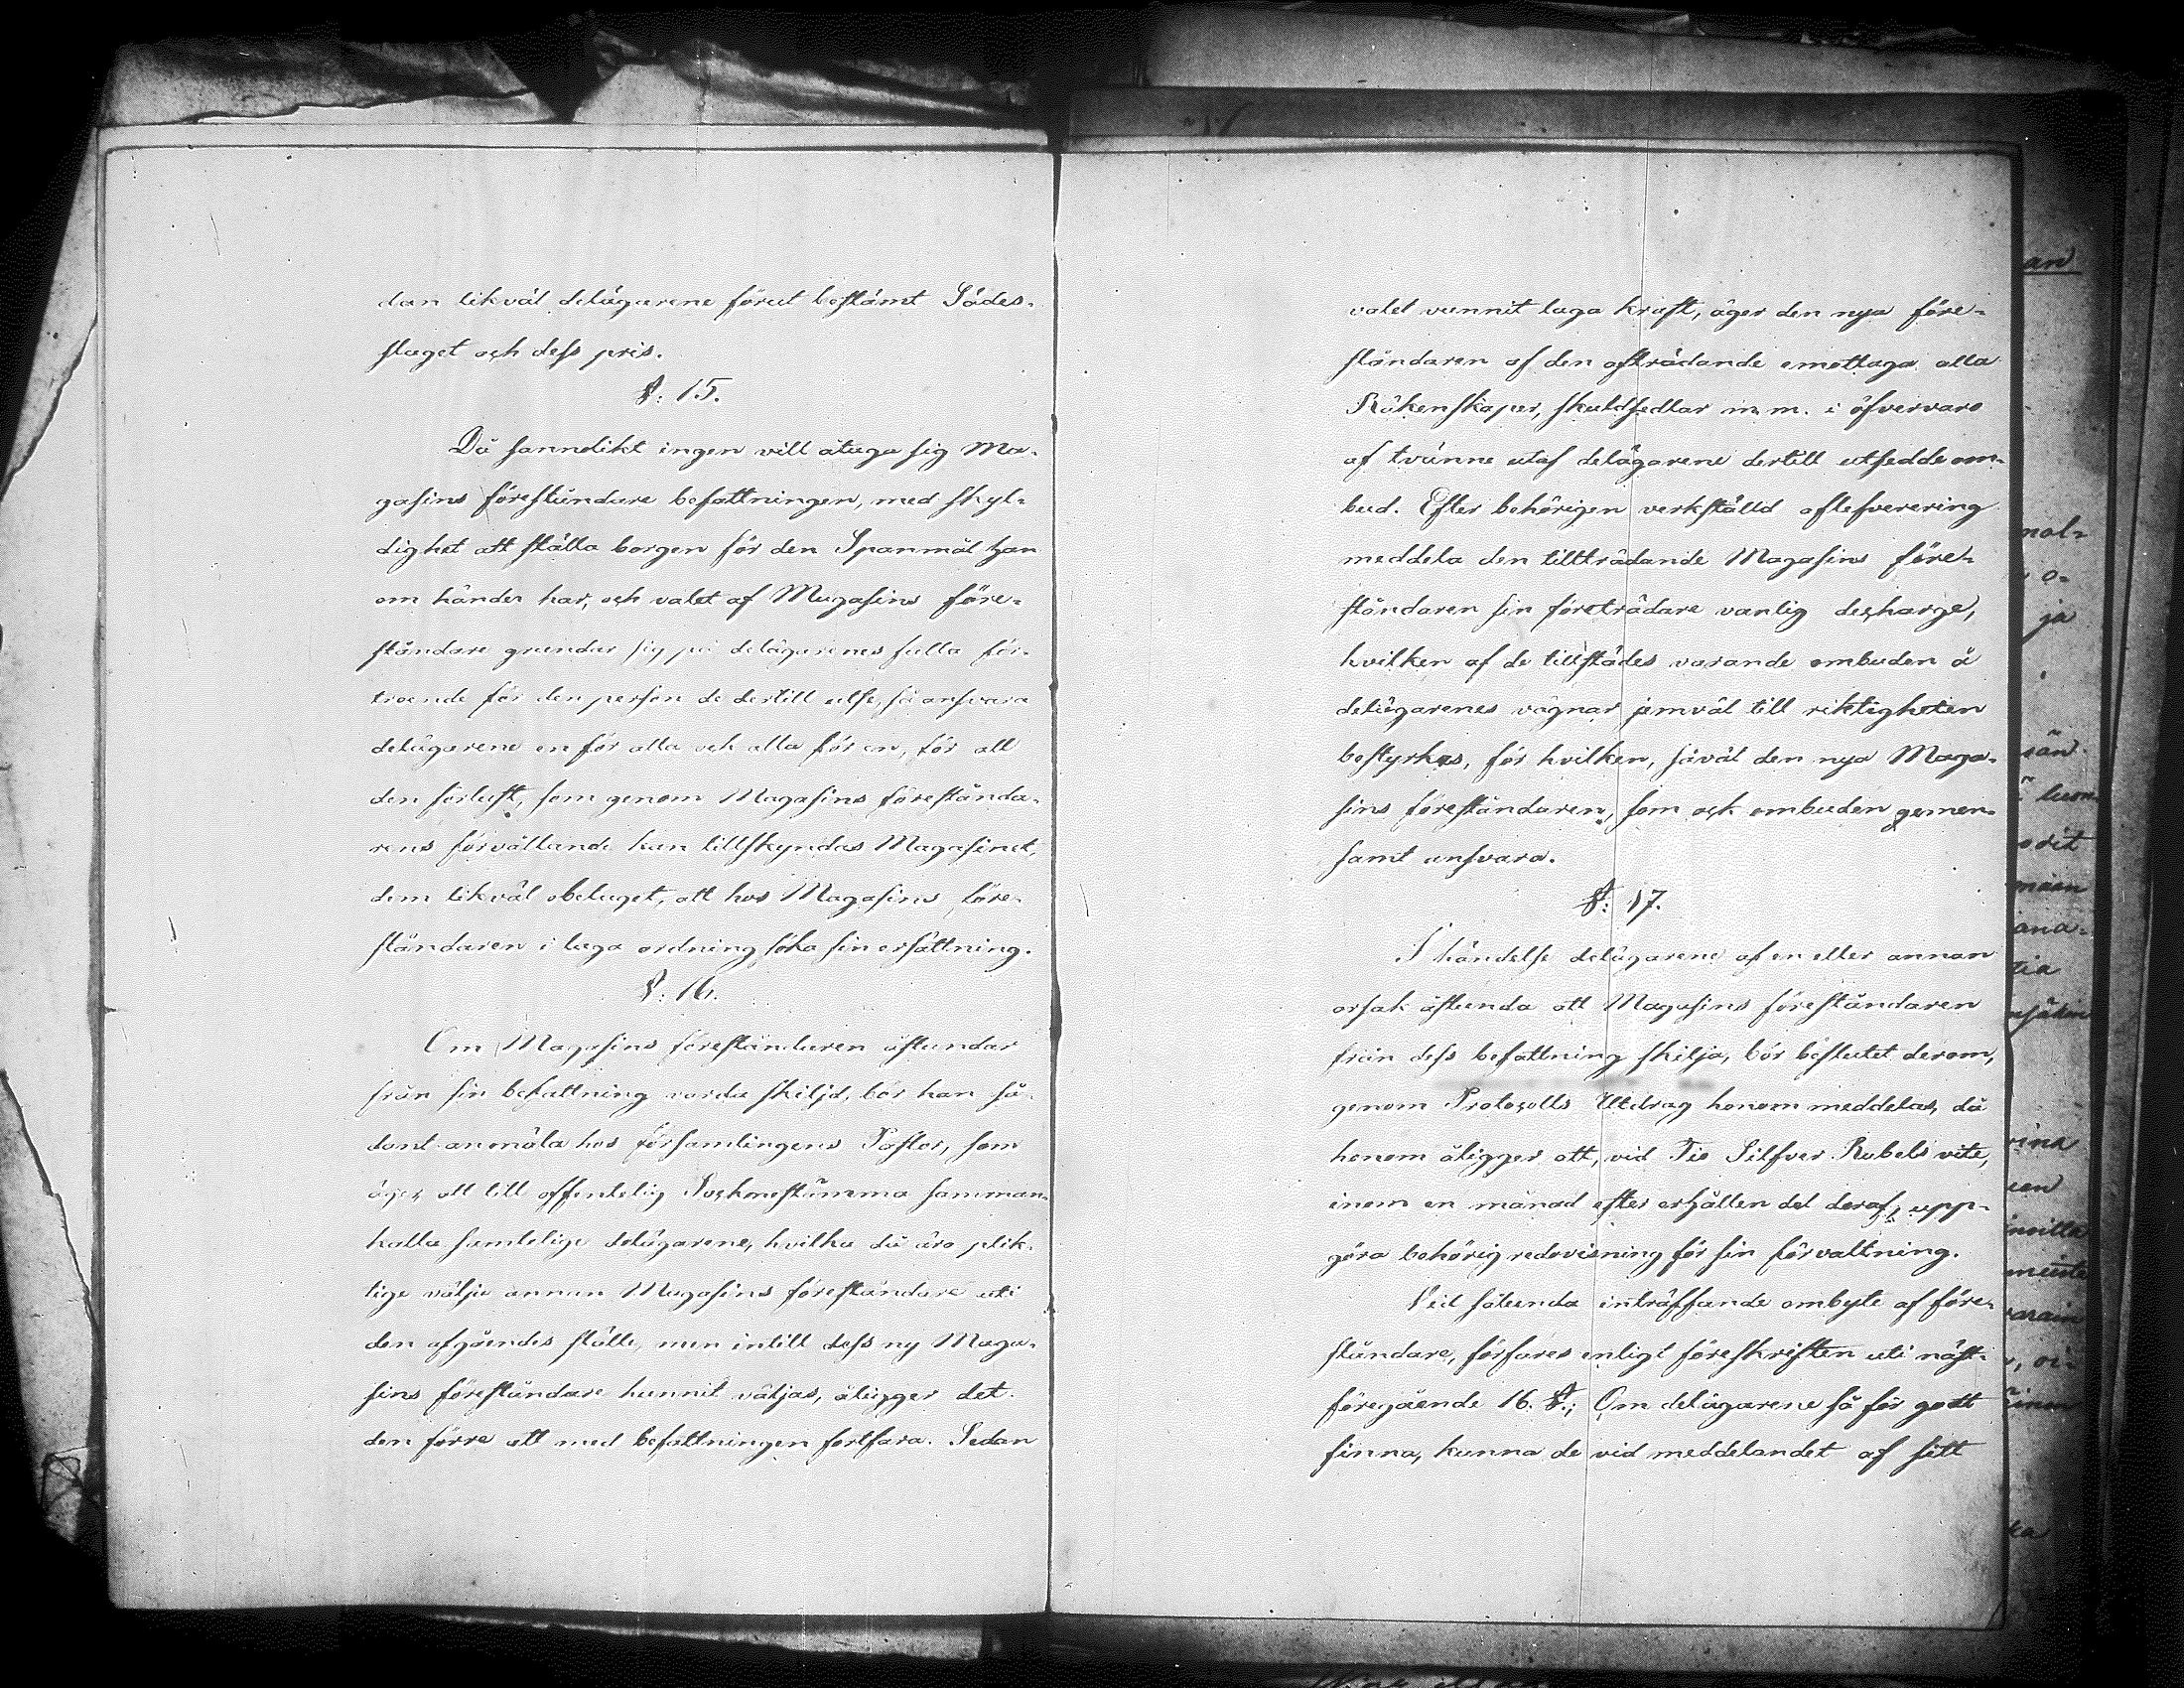 dan likväl delägarene förut bestämt Sädes-
slaget och dess pris.
§: 15.
Då sanndikt ingen vill åtaga sig Ma-
gasins föreståndare befattningen, med skyl-
dighet att ställa borgen för den Spanmål han
om händer har, och valet af Magasins före-
ståndare grundar sig på delägarenes fulla för-
troende för den person de dertill utse, så ansvara
delägarene en för alla och alla för en, för all
den förlust, som genom Magasins förestånda-
rens förvållande kan tillskyndas Magasinet,
dem likväl obetaget, att hos Magasins före-
ståndaren i laga ordning söka sin ersättning.
§: 16.
Om Magasins föreståndaren åstundar
från sin befattning varda skiljd, bör han så-
dant anmäla hos församlingens Pastor, som
äger att till offentelig Sockenestämma samman-
kalla samtelige delägarene, hvilka då äro plik-
tige välja annan Magasins föreståndare uti
den afgåendes ställe, men intill dess ny Maga-
sins föreståndare hunnit väljas, åligger det
den förre att med befattningen fortfara. Sedan
valet vunnit laga kraft, äger den nya före-
ståndaren af den afträdande emottaga alla
Räkenskaper, skuldsedlar m. m. i öfvervaro
af tvänne utaf delägarene dertill utsedde om-
bud. Efter behörigen verkställd aflefverering
meddela den tillträdande Magasins före-
ståndaren sin företrädare vanlig decharge,
hvilken af de tillstädes varande ombuden å
delägarenes vägnar jemväl till riktigheten
bestyrkes, för hvilken, såväl den nya Maga-
sins föreståndaren, som ock ombuden gemen-
samt ansvara.
§: 17.
I händelse delägarene af en eller annan
orsak åstunda att Magasins föreståndaren
från dess befattning skilja, bör beslutet derom,
genom Protocolls Utdrag honom meddelas, då
honom åligger att, vid Tio Silfver Rubels vite,
inom en månad efter erhållen del deraf, upp-
göra behörig redovisning för sin förvaltning.
Vid sålunda inträffande ombyte af före-
ståndare, förfares enligt föreskriften uti näst-
föregående 16. §.; Om delägarene så för godt
finna, kunna de vid meddelandet af sitt